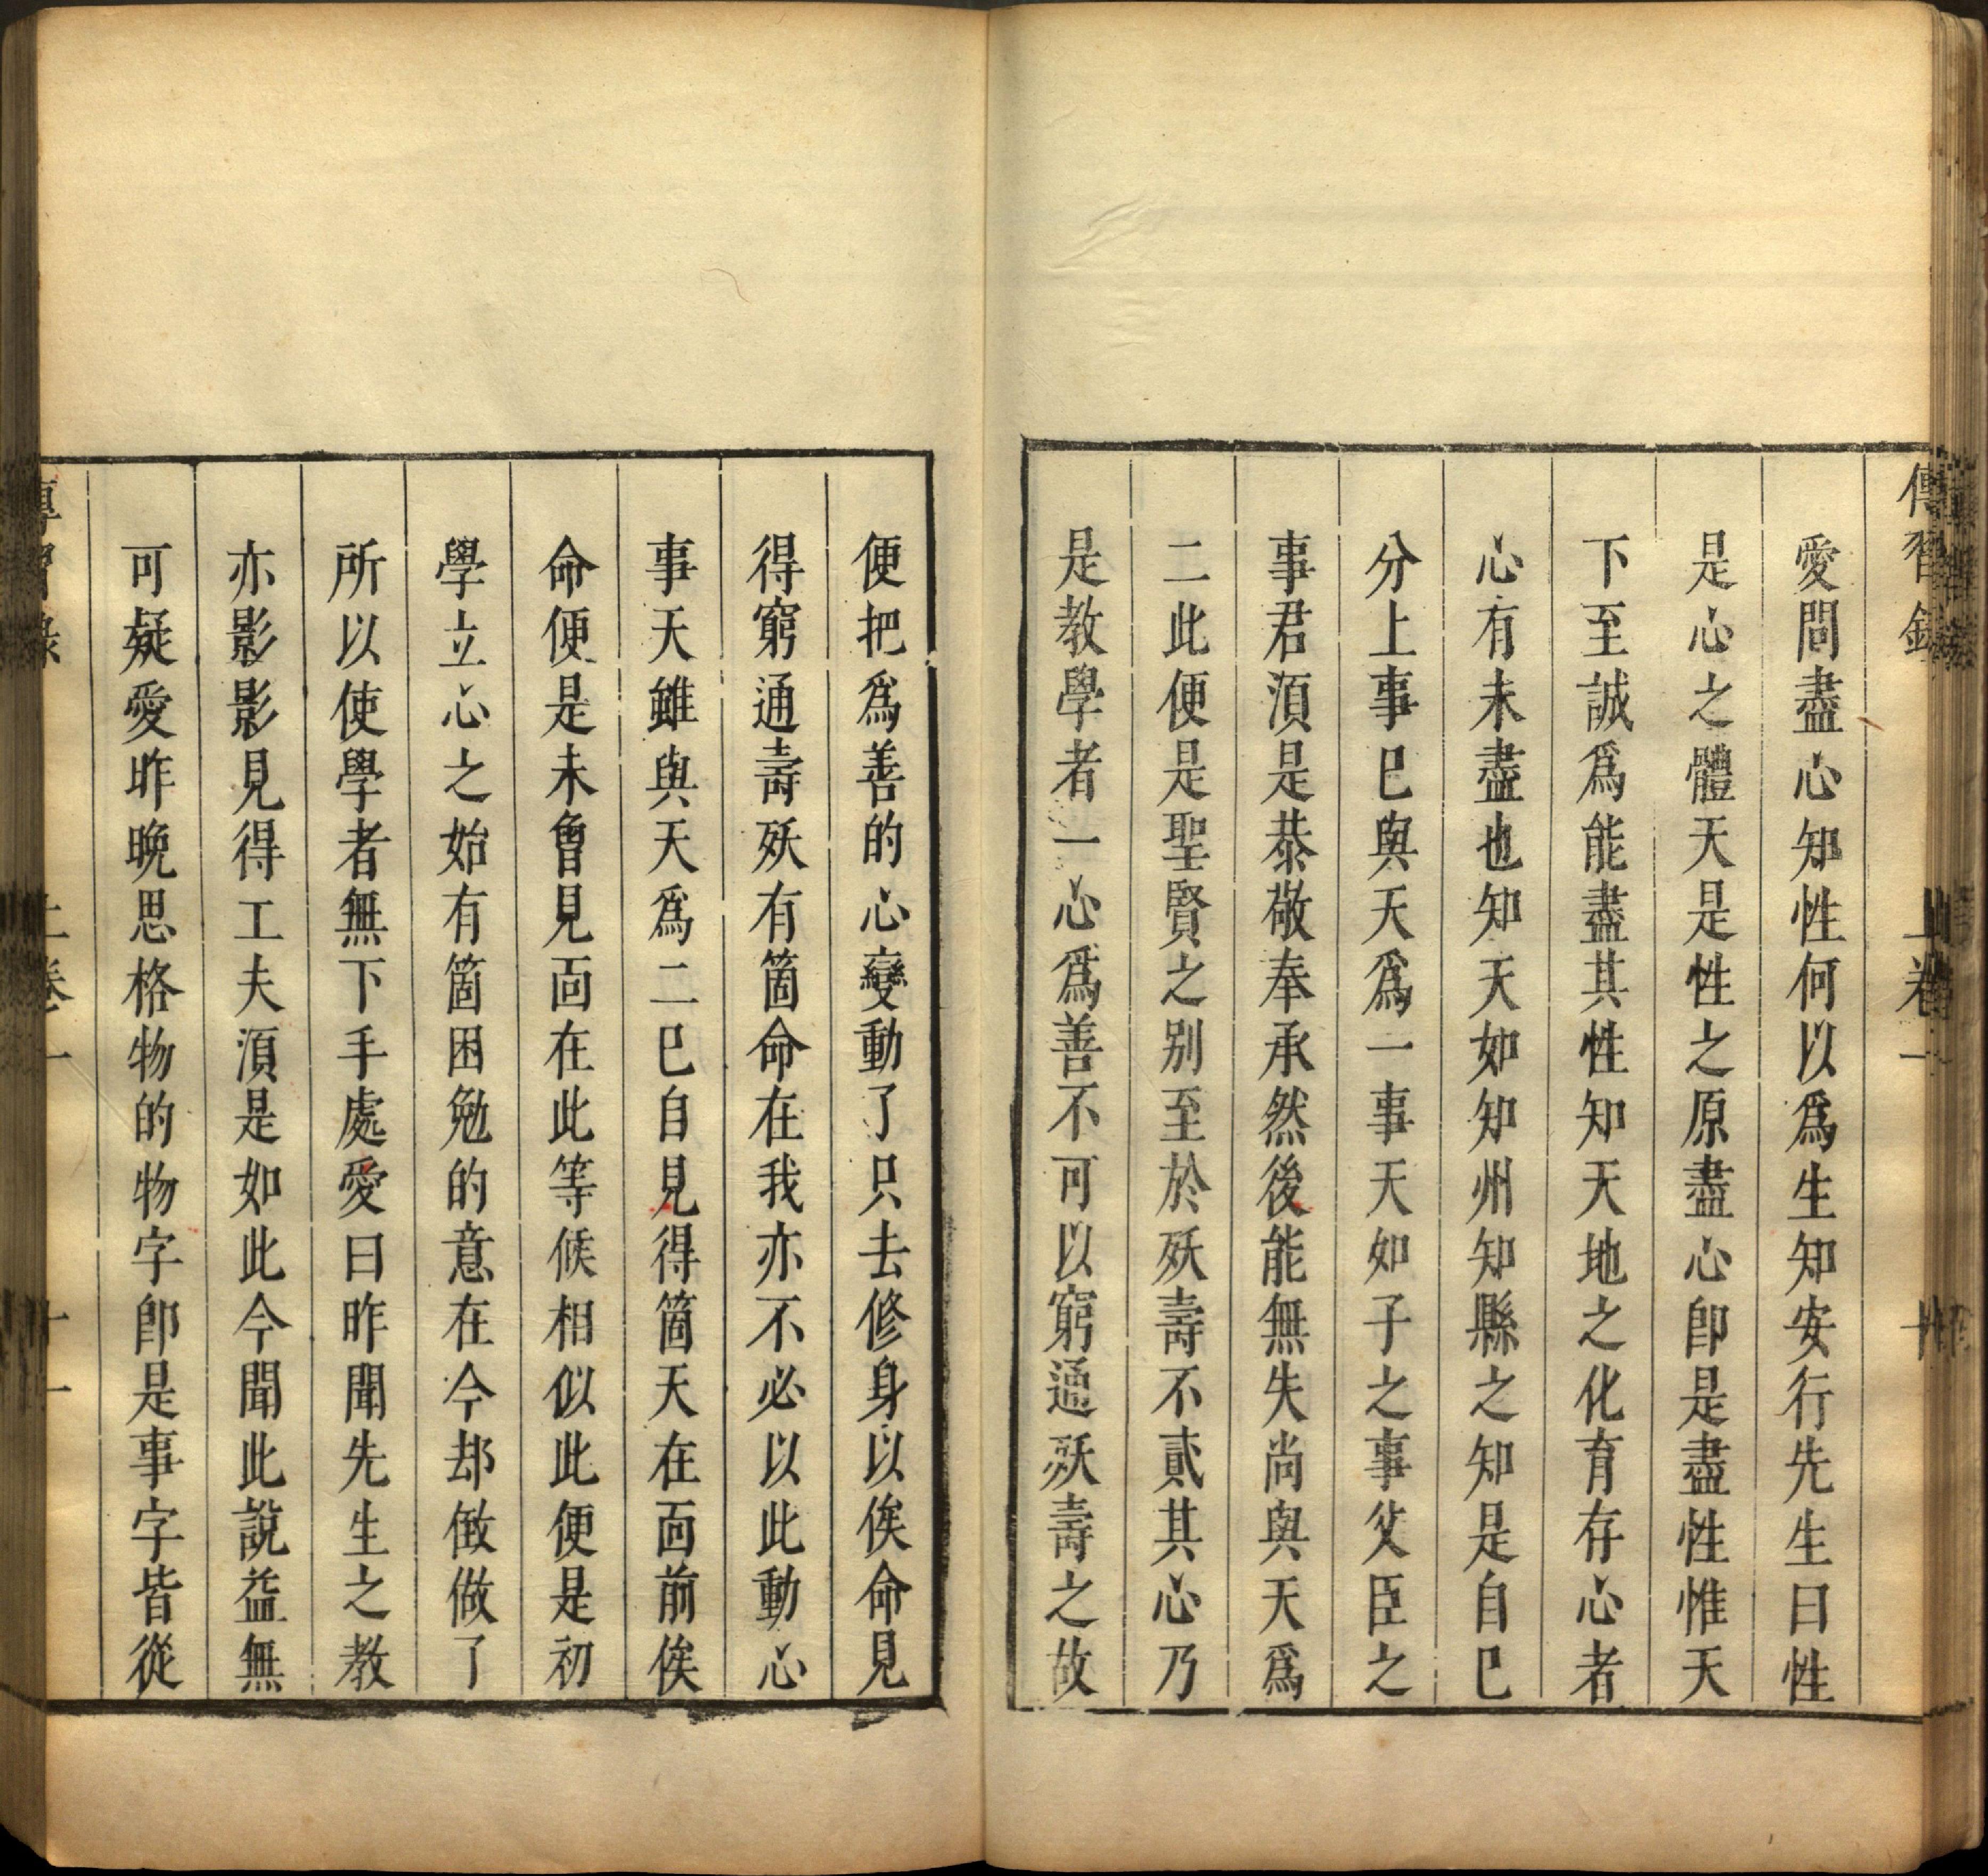 傳習錄 上卷一 十
愛問盡心知性何以爲生知安行先生曰性
是心之體天是性之原盡心卽是盡性惟天
下至誠爲能盡其性知天地之化育存心者
心有未盡也知天如知州知縣之知是自己
分上事已與天爲一事天如子之事父臣之
事君湏是恭敬奉承然後能無失尚與天爲
二此便是聖賢之別至於殀壽不貳其心乃
是教學者一心爲善不可以窮通殀壽之故
便把爲善的心變動了只去修身以俟命見
得窮通壽殀有箇命在我亦不必以此動心
事天雖與天爲二已自見得箇天在面前俟
命便是未曾見面在此等候相似此便是初
學立心之始有箇困勉的意在今却倒做了
所以使學者無下手處愛曰昨聞先生之教
亦影影見得工夫湏是如此今聞此說益無
可疑愛昨晚思格物的物字卽是事字皆從
傳習錄 上卷一 十一